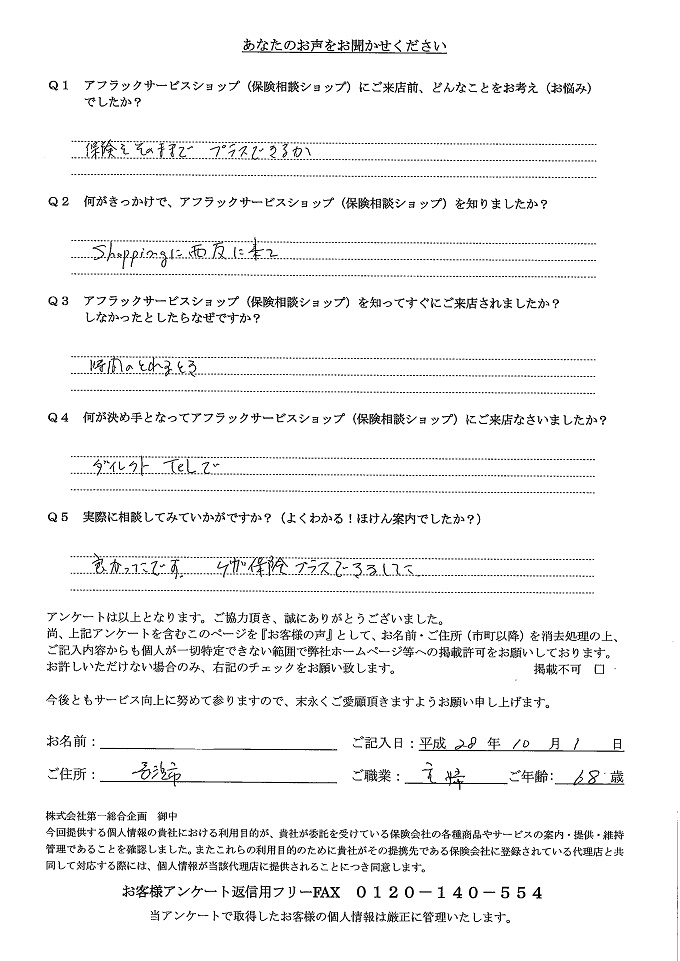 あなたのお声をお聞かせください
Q1 アフラックサービスショップ（保険相談ショップ）にご来店前、どんなことをお考え（お悩み）
でしたか？
保険をそのままで プラスできるか
Q2 何がきっかけで、アフラックサービスショップ（保険相談ショップ）を知りましたか？
Shoppingに西友に来て
Q3 アフラックサービスショップ（保険相談ショップ）を知ってすぐにご来店されましたか？
しなかったとしたらなぜですか？
時間のとれるとき
Q4 何が決め手となってアフラックサービスショップ（保険相談ショップ）にご来店なさいましたか？
ダイレクト Telで
Q5 実際に相談してみていかがですか？（よくわかる！ほけん案内でしたか？）
良かったです。 ケガ保険プラスできるしてこ
アンケートは以上となります。ご協力頂き、誠にありがとうございました。
尚、上記アンケートを含むこのページを『お客様の声』として、お名前・ご住所（市町以降）を消去処理の上、
ご記入内容からも個人が一切特定できない範囲で弊社ホームページ等への掲載許可をお願いしております。
お許しいただけない場合のみ、右記のチェックをお願い致します。 掲載不可 □
今後ともサービス向上に努めて参りますので、末永くご愛顧頂きますようお願い申し上げます。
お名前： ご記入日：平成 28 年 10 月 1 日
ご住所： 市 ご職業： 主婦 ご年齢： 68 歳
株式会社第一総合企画 御中
今回提供する個人情報の貴社における利用目的が、貴社が委託を受けている保険会社の各種商品やサービスの案内・提供・維持
管理であることを確認しました。またこれらの利用目的のために貴社がその提携先である保険会社に登録されている代理店と共
同して対応する際には、個人情報が当該代理店に提供されることにつき同意します。
お客様アンケート返信用フリーFAX 0120－140－554
当アンケートで取得したお客様の個人情報は厳正に管理いたします。